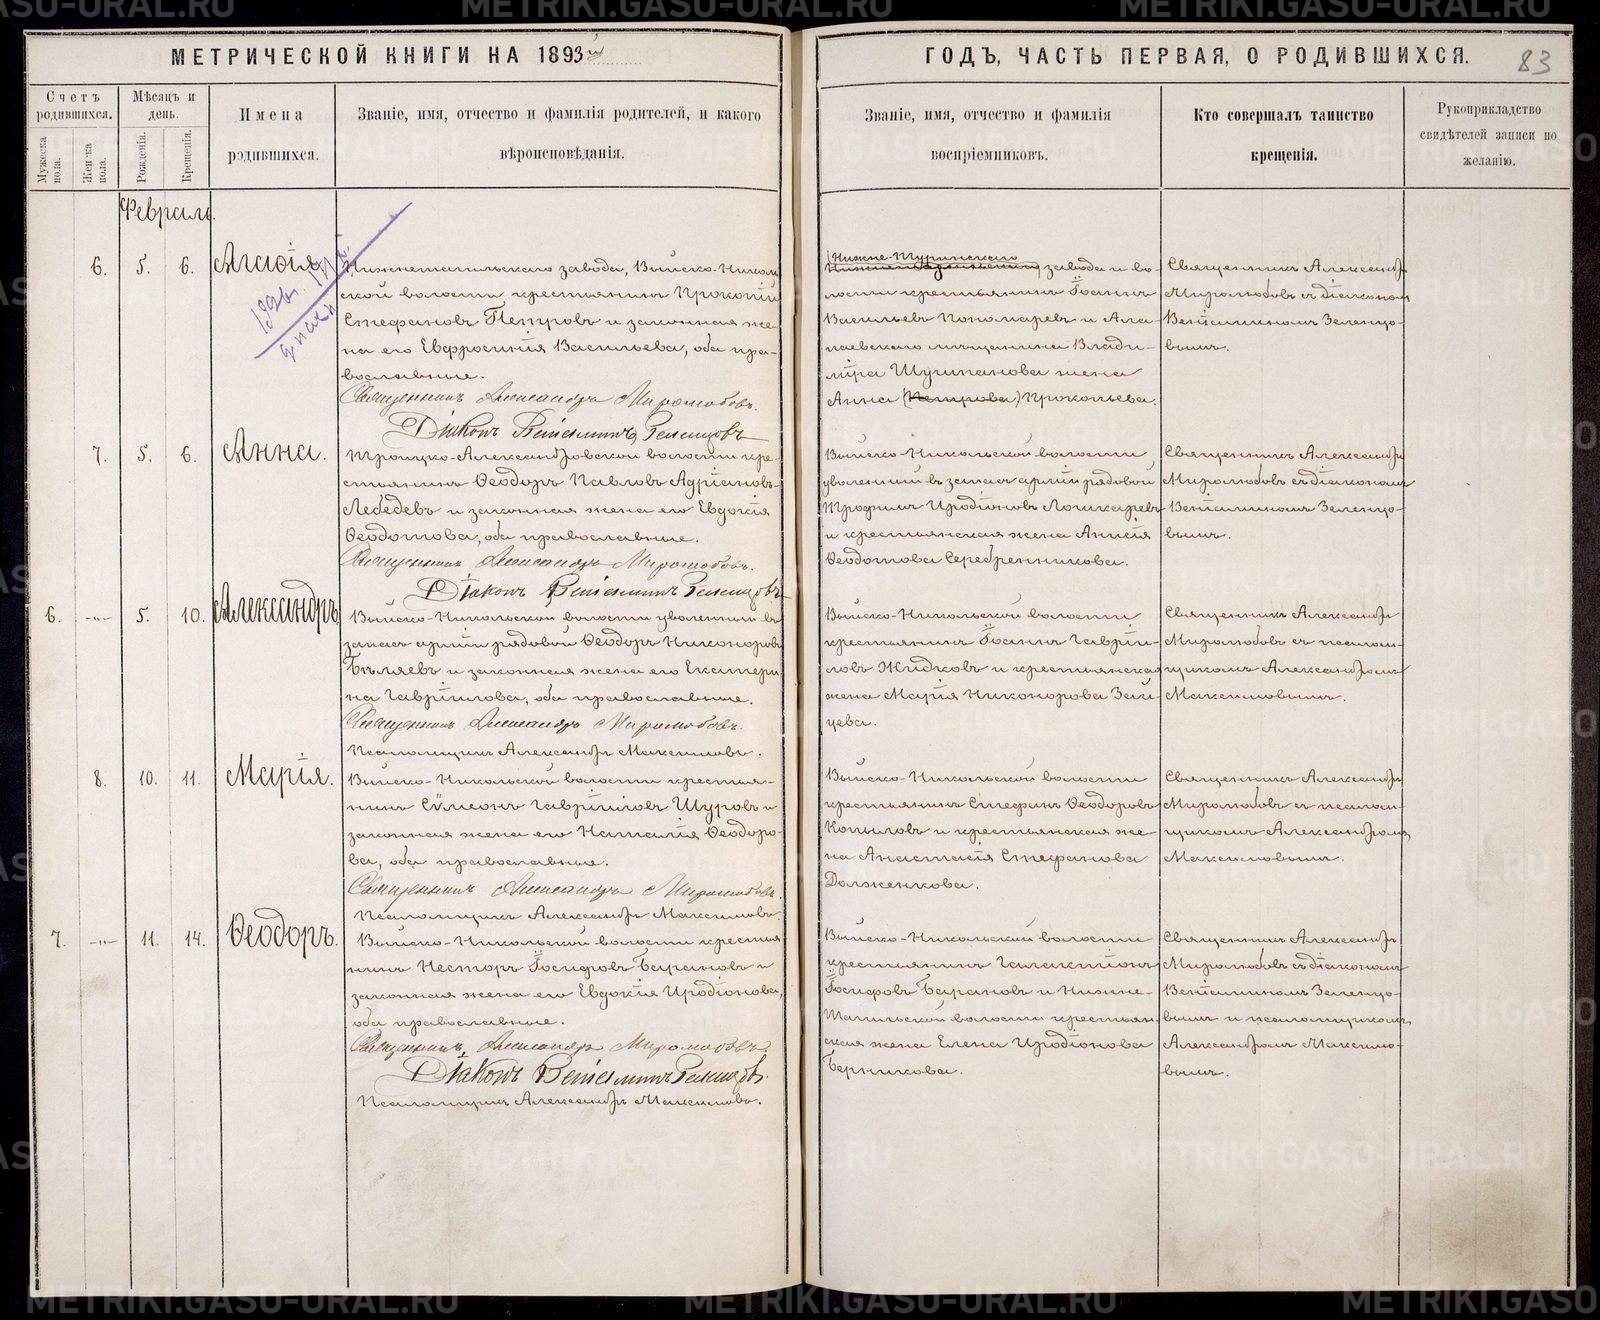 МЕТРИЧЕСКОЙ КНИГИ НА 1893й
Счетъ родившихся.
Мужеска пола.
Женска пола.
Мѣсяцъ и день.
Рожденія.
Крещенія.
Имена родившихся.
Званіе, имя, отчество и фамилія родителей, и какого
вѣроисповѣданія.
Февраль.
6. 5. 6. Агаѳія
Нижнетагильскаго завода, Выйско-Николь
ской волости крестьянинъ Прокопій
Стефановъ Петровъ и законная же-
на его Евфросинія Васильева, оба пра-
вославные.
Священникъ Александръ Миролюбовъ.
Діаконъ Веніаминъ Зеленцовъ
7. 5. 6. Анна.
Троицко-Александровской волости кре-
стьянинъ Ѳеодоръ Павловъ Адріановъ-
Лебедевъ и законная жена его Евдокія
Ѳеодотова, оба православные.
Священникъ Александръ Миролюбовъ.
Діаконъ Веніаминъ Зеленцовъ
6. -„- 5. 10. Александръ
Выйско-Никольской волости уволенный въ
запасъ арміи рядовой Ѳеодоръ Никоноровъ
Бѣляевъ и законная жена его Екатери
на Гавріилова, оба православные.
Священникъ Александръ Миролюбовъ.
Псаломщикъ Александръ Максимовъ.
8. 10. 11. Марія.
Выйско-Никольской волости крестья-
нинъ Сѵмеонъ Гавріиловъ Щуровъ и
законная жена его Наталія Ѳеодоро-
ва, оба православные.
Священникъ Александръ Миролюбовъ.
Псаломщикъ Александръ Максимовъ.
7. -„- 11. 14. Ѳеодоръ.
Выйско-Никольской волости крестья
нинъ Несторъ Іосифовъ Барановъ и
законная жена его Евдокія Иродіонова,
оба православные.
Священникъ Александръ Миролюбовъ.
Діаконъ Веніаминъ Зеленцовъ.
Псаломщикъ Александръ Максимовъ.
ГОДЪ, ЧАСТЬ ПЕРВАЯ, О РОДИВШИХСЯ.
83
Званіе, имя, отчество и фамилія
воспріемниковъ.
Кто совершалъ таинство
крещенія.
Рукоприкладство
свидѣтелей записи по
желанію.
(Нижне-Туринскаго
завода и во-
лости крестьянинъ Іоаннъ
Васильевъ Пономаревъ и Ала
паевскаго мѣщанина Влади-
міра Шушпанова жена
Анна (Петрова) Прокопьева.
Священникъ Александръ
Миролюбовъ съ діакономъ
Веніаминомъ Зеленцо-
вымъ.
Выйско-Никольской волости
уволенный въ запасъ арміи рядовой
Трофимъ Иродіоновъ Лошкаревъ
и крестьянская жена Анисія
Ѳеодотова Серебренникова.
Священникъ Александръ
Миролюбовъ съ діакономъ
Веніаминомъ Зеленцо-
вымъ.
Выйско-Никольской волости
крестьянинъ Іоаннъ Гаврііи-
ловъ Жидковъ и крестьянская
жена Марія Никонорова Зай
цева.
Священникъ Александръ
Миролюбовъ съ псалом-
щикомъ Александромъ
Максимовымъ.
Выйско-Никольской волости
крестьянинъ Стефанъ Ѳеодоровъ
Копыловъ и крестьянская же-
на Анастасія Стефанова
Долженкова.
Священникъ Александръ
Миролюбовъ съ псалом-
щикомъ Александромъ
Максимовымъ.
Выйско-Никольской волости
крестьянинъ Галактіонъ
Іосифовъ Барановъ и Нижне-
Тагильской волости крестьян
ская жена Елена Иродіонова
Берникова.
Священникъ Александръ
Миролюбовъ съ діакономъ
Веніаминомъ Зеленцо-
вымъ и псаломщикомъ
Александромъ Максимо-
вымъ.
METRIKI.GASO-URAL.RU